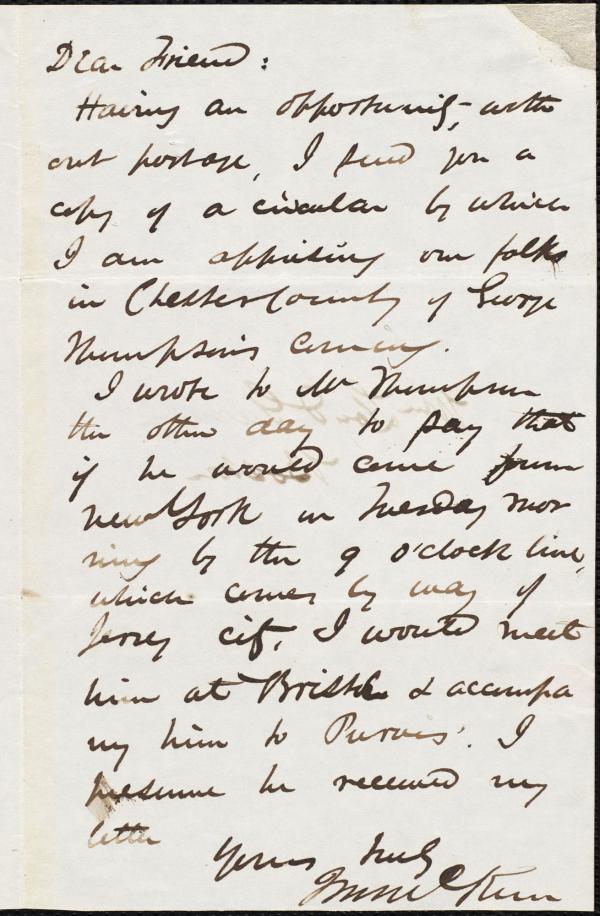 Dear Friend:
Having an opportunity, with
out postage, I send you a
copy of a circular by which
I am apprising our folks
in Chester County of George
Thompson's coming.
I wrote to Mr Thompson
the other day to say that
if he would come from
New York in Tuesday mor
ning by the 9 o'clock line,
which comes by way of
Jersey city, I would meet
him at Bristol & accompa
ny him to Purvis'. I
presume he received my
letter
Yours truly
J. M. McKim